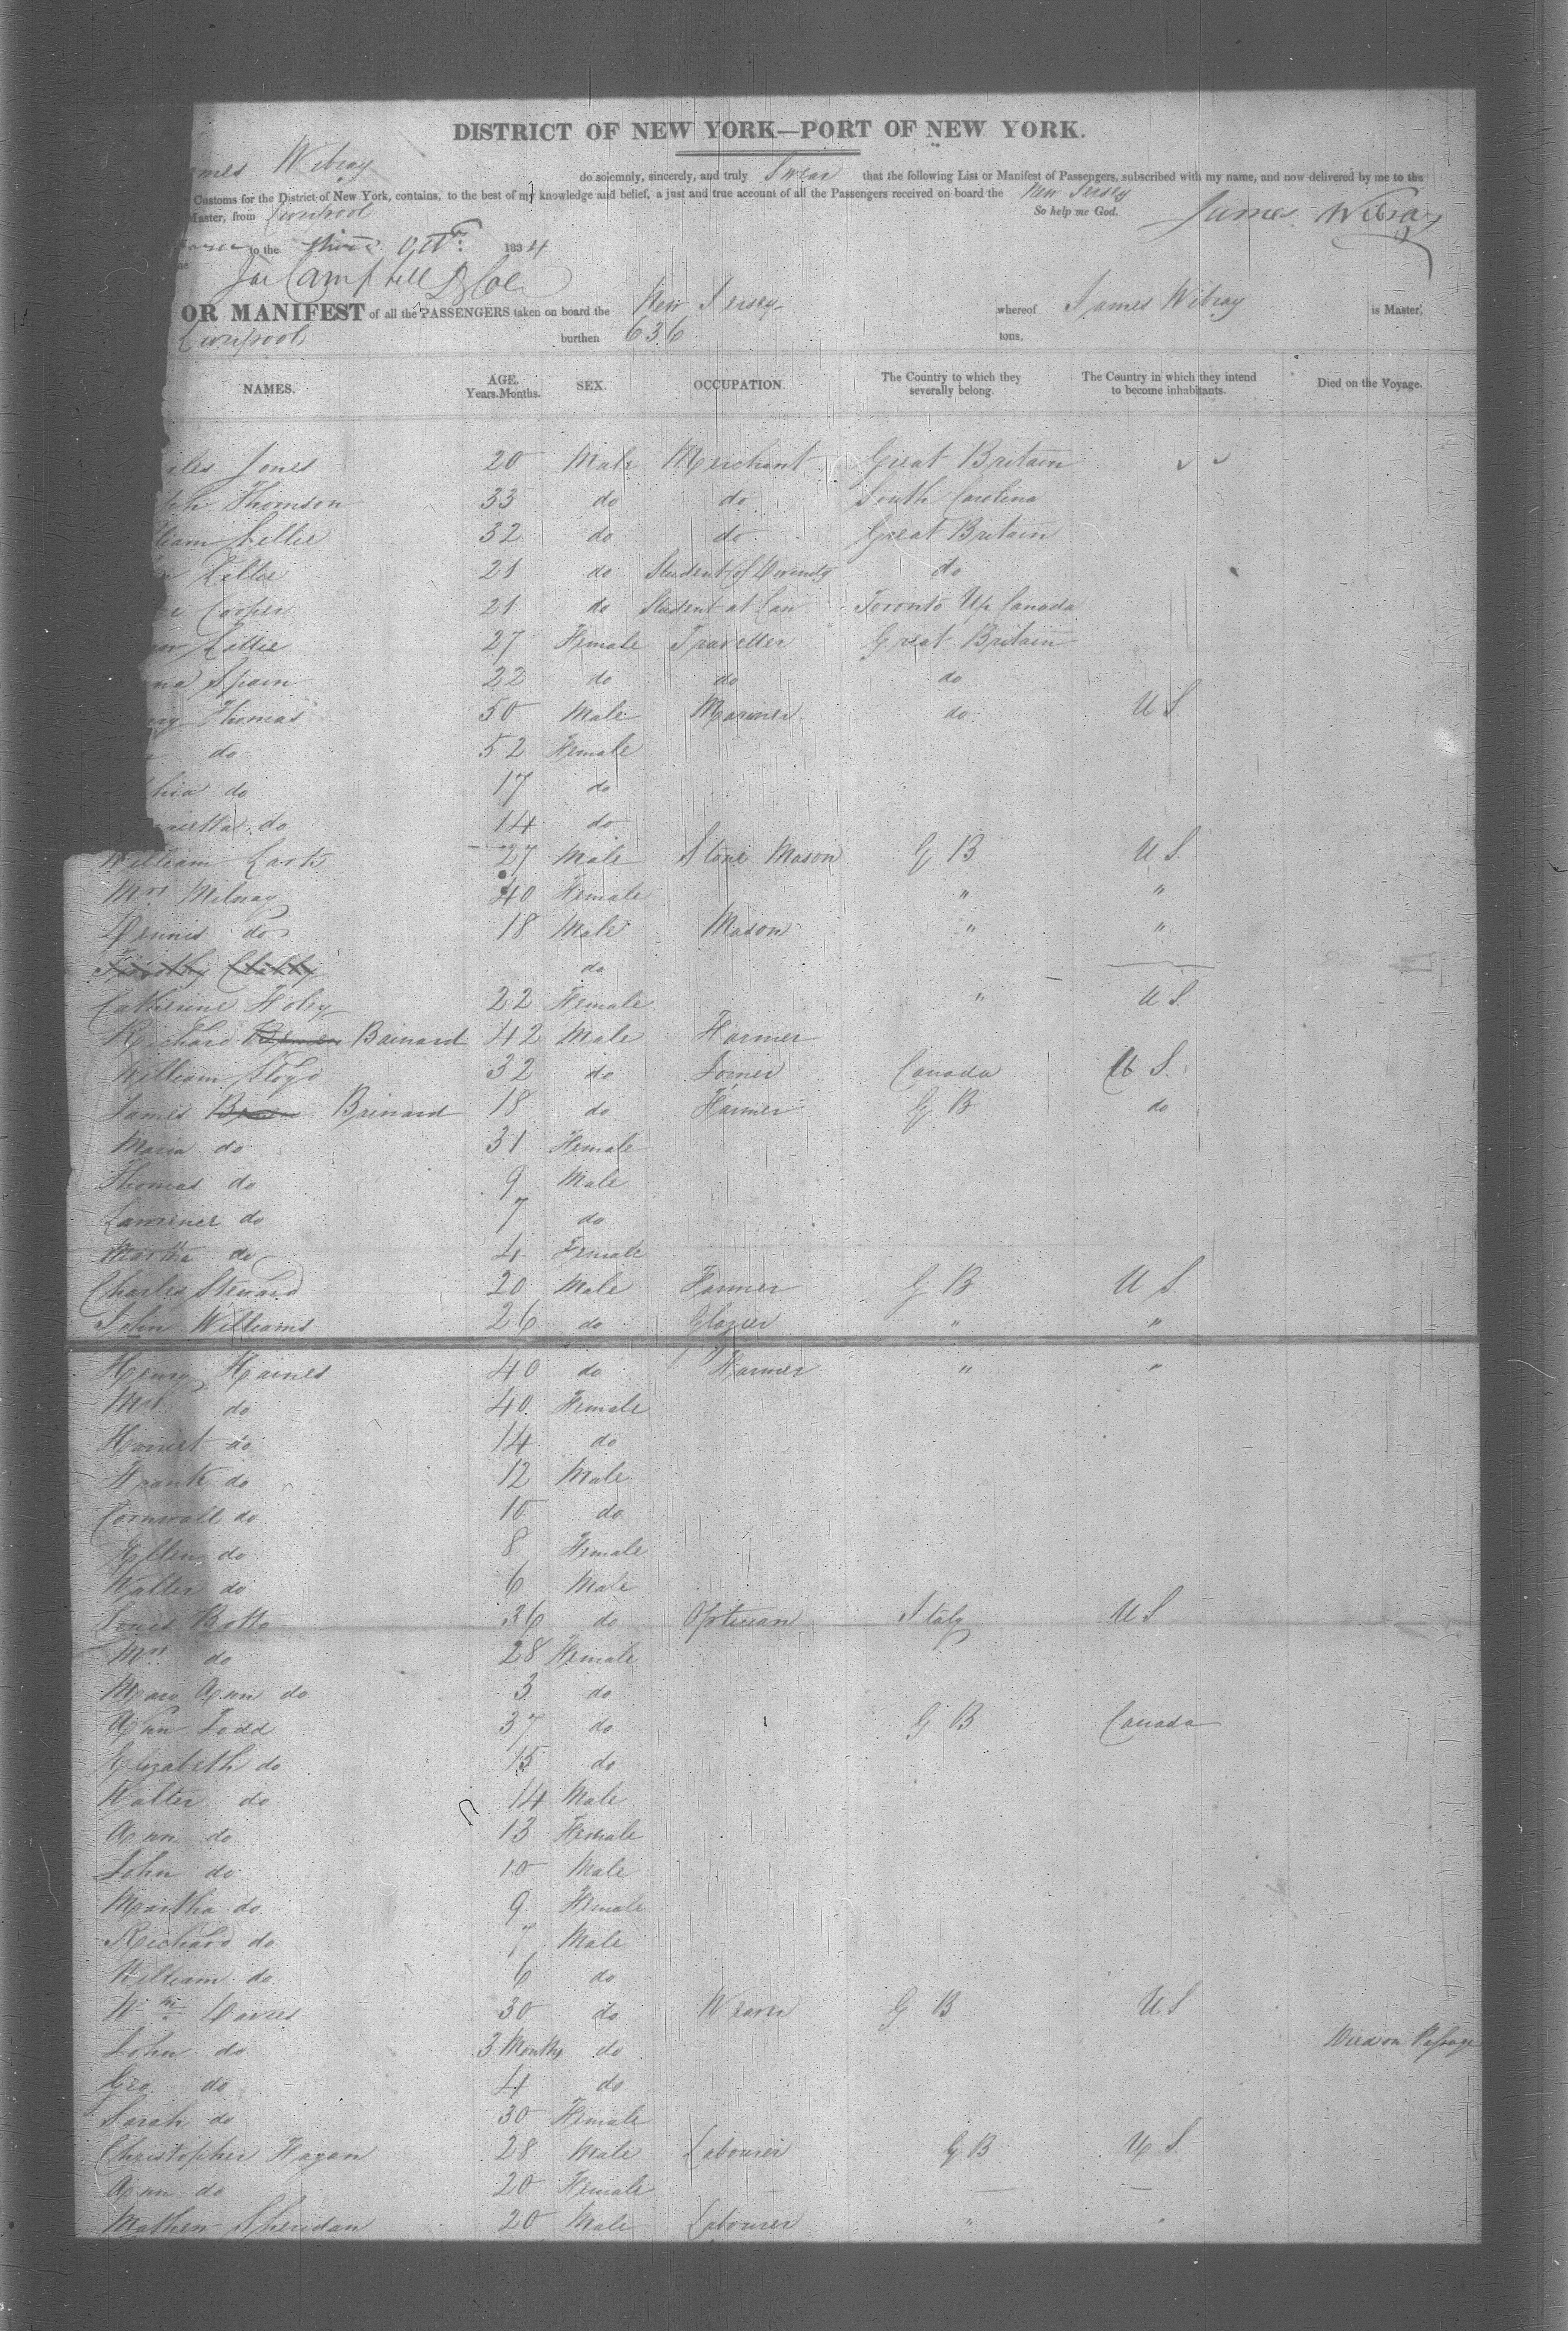 DISTRICT OF NEW YORK—PORT OF NEW YORK.
mes Wibray do solemnly, sincerely, and truly Swear that the following List or Manifest of Passengers, subscribed with my name, and now delivered by me to the
Customs for the District of New York, contains, to the best of my knowledge and belief, a just and true account of all the Passengers received on board the New Jersey
Master, from Liverpool So help me God. James Wibray
to the Octr. 1834
Campbell
OR MANIFEST of all the PASSENGERS taken on board the New Jersey whereof James Wibray is Master,
Liverpool burthen 636 tons.
NAMES. AGE. Years. Months. SEX. OCCUPATION. The Country to which they severally belong. The Country in which they intend to become inhabitants. Died on the Voyage.
Jones 20 Male Merchant Great Britain
Thomson 33 do do South Carolina
liam Lillie 32 do do Great Britain
Lillie 21 do Student of Divinity do
Cooper 21 do Student at Law Toronto Up Canada
Lillie 27 Female Traveller Great Britain
na Spain 22 do do do
Thomas 50 Male Mariner do U S
do 52 Female
hia do 17 do
rietta do 14 do
William 27 Male Stone Mason G B U S.
Mrs Milway 40 Female " "
Dennis do 18 Male Mason " "
do
Catherine Foley 22 Female " U S.
Richard Bainard 42 Male Farmer
William Lloyd 32 do Joiner Canada U S.
James Brinard 18 do Farmer G B do
Maria do 31 Female
Thomas do 9 Male
Lawrence do 7 do
Martha do 4 Female
Charles Steward 20 Male Farmer G B U S
John Williams 26 do Glazier " "
Henry Haines 40 do Farmer " "
Mrs do 40 Female
Harriet do 14 do
Frank do 12 Male
Cornwall do 10 do
Ellen do 8 Female
Walter do 6 Male
Louis Botto 36 do Optician Italy U S
Mrs do 28 Female
Mary Ann do 3 do
Ann Todd 37 do G B Canada
Elizabeth do 15 do
Walter do 14 Male
Ann do 13 Female
John do 10 Male
Martha do 9 Female
Richard do 7 Male
William do 6 do
Wm Davies 30 do Weaver G B U S
John do 3 Months do Died on Passage
Geo do 4 do
Sarah do 30 Female
Christopher Hagan 28 Male Labourer G B U S.
Ann do 20 Female — —
Mathew Sheridan 20 Male Labourer " "